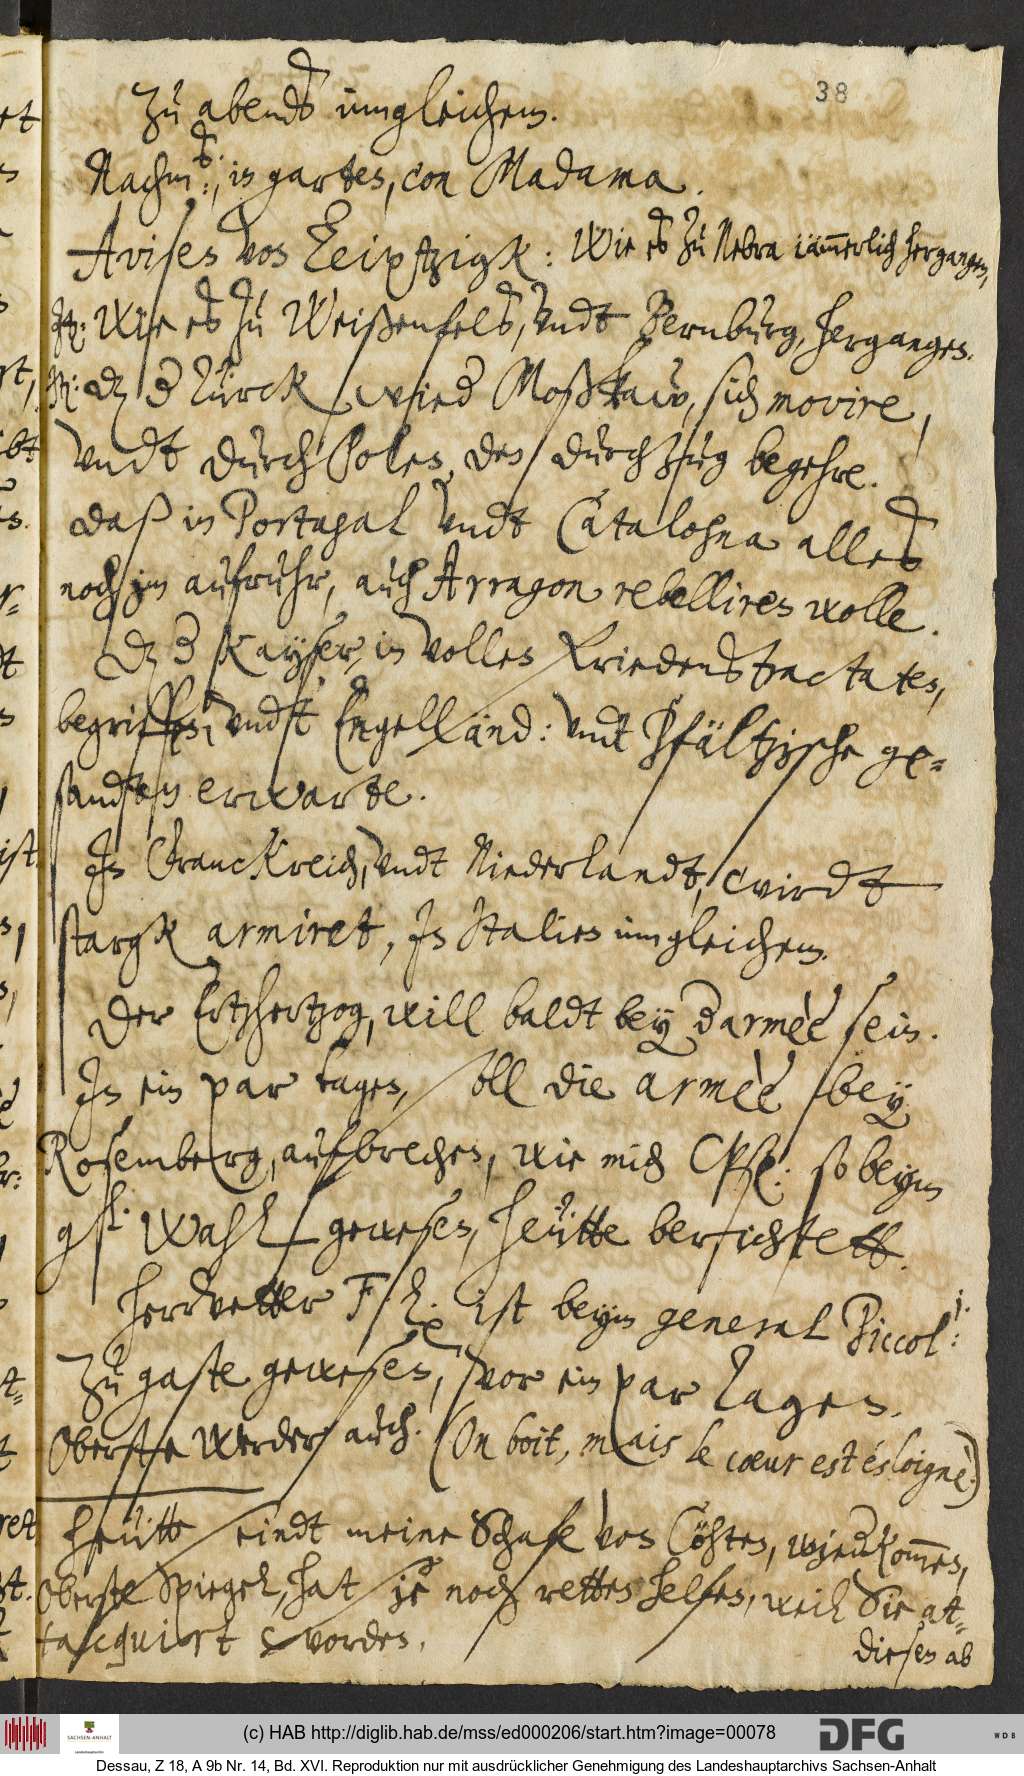 38
Zu abends imgleichem.
Nachmts:, in garten, con Madama.
Avisen von Leiptzigk: Wie es zu Nebra iämmerlich hergangen,
It: wie es zu Weißenfelß, undt Bernburg, hergangen.
It: dz der Türck wieder Moßkaw, sich movire,
undt durch Polen, den durchzug begehre.
daß in Portugal undt Catalohna alles
noch im aufruhr, auch Arragon rebelliren wolle.
Dz der Kayser, in vollen Friedenstractaten,
begriffen, undt Engelländ: undt Pfältzische ge-
sandten erwarte.
In Franckreich, undt Niederlandt, wirdt
stargk armiret, In Italien imgleichem.
Der Ertzhertzog, will baldt bey der armèè sein.
In ein par tagen, soll die armèè bey
Rosemberg, aufbrechen, wie mich CPf: so beym
gl. Wahl gewesen, heütte berichtett.
Herrvetter F L: ist beym general Piccol:i.
zu gaste gewesen, vor ein par Tagen.
Oberste Werder auch. (On boit, mais le cœur est ésloignè.)
Heütte seindt meine Schafe von Cöhten, wiederkommen,
Oberste Spiegel, hat sie noch retten helfen, weil Sie at-
tacquirt worden.
diesen ab
(c) HAB http://diglib.hab.de/mss/ed000206/start.htm?image=00078
SACHSEN-ANHALT
DFG
WDB
Dessau, Z 18, A 9b Nr. 14, Bd. XVI. Reproduktion nur mit ausdrücklicher Genehmigung des Landeshauptarchivs Sachsen-Anhalt